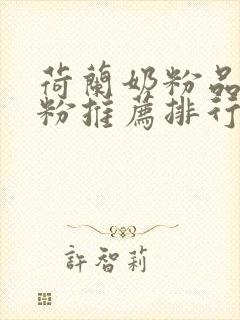 荷蘭奶粉品
粉推薦排行
許智莉